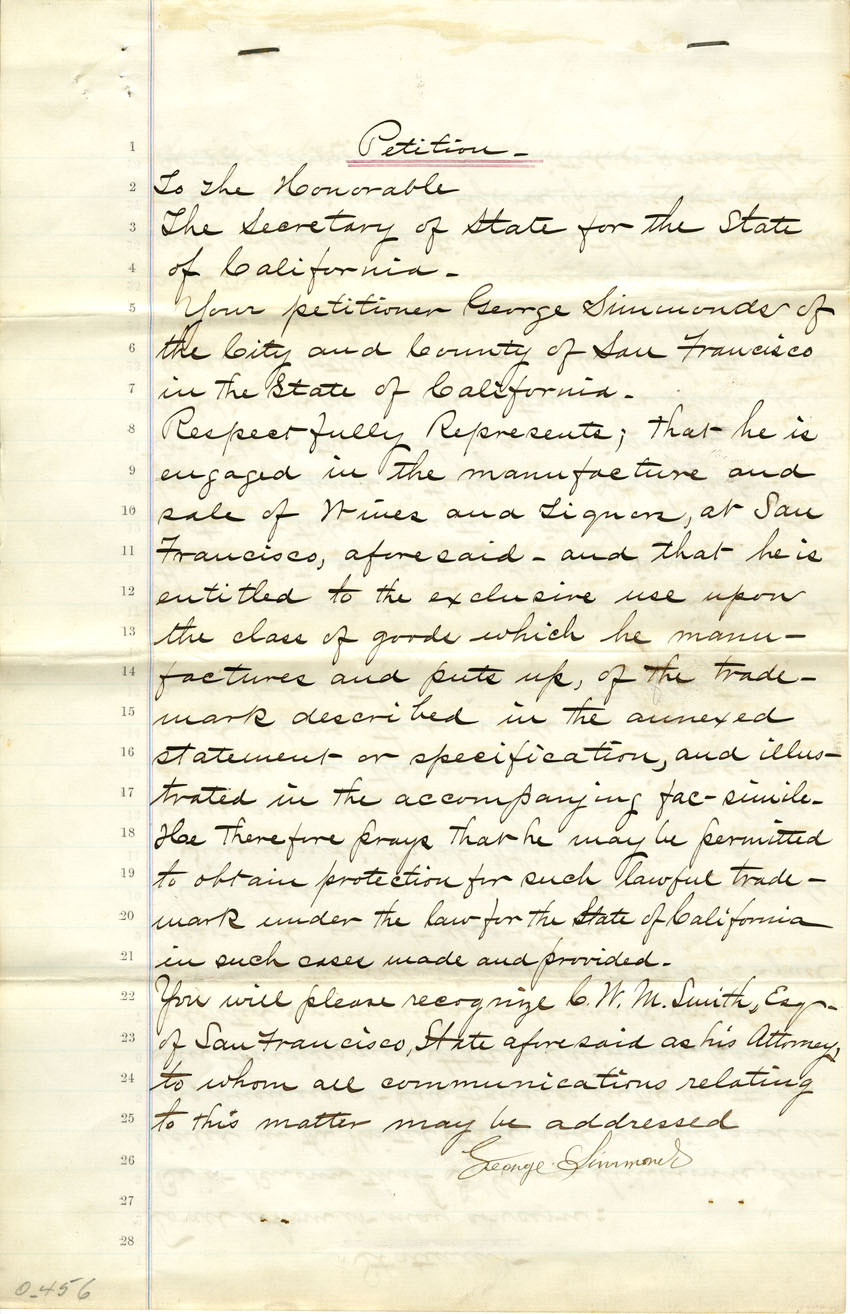 1 Petition -
2 To the Honorable
3 The Secretary of State for the State
4 of California -
5 Your petitioner George Simmonds of
6 the City and County of San Francisco
7 in the State of California -
8 Respectfully Represents; that he is
9 engaged in the manufacture and
10 sale of Wines and Liquors, at San
11 Francisco, aforesaid - and that he is
12 entitled to the exclusive use upon
13 the class of goods which he manu-
14 factures and puts up, of the trade-
15 mark described in the annexed
16 statement or specification, and illus-
17 trated in the accompanying fac-simile -
18 He therefore prays that he may be permitted
19 to obtain protection for such lawful trade-
20 mark under the law for the State of California
21 in such cases made and provided -
22 You will please recognize C. W. M. Smith, Esqr -
23 of San Francisco, State aforesaid as his Attorney,
24 to whom all communications relating
25 to this matter may be addressed
26 George Simmonds
27
28
0-456